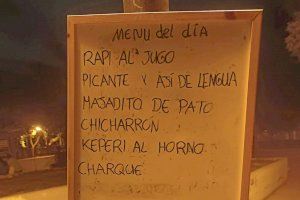 MENU del día
RAPI AL JUGO
PICANTE Y AJÍ DE LENGUA
MAJADITO DE PATO
CHICHARRÓN
KEPERI AL HORNO
CHARQUE